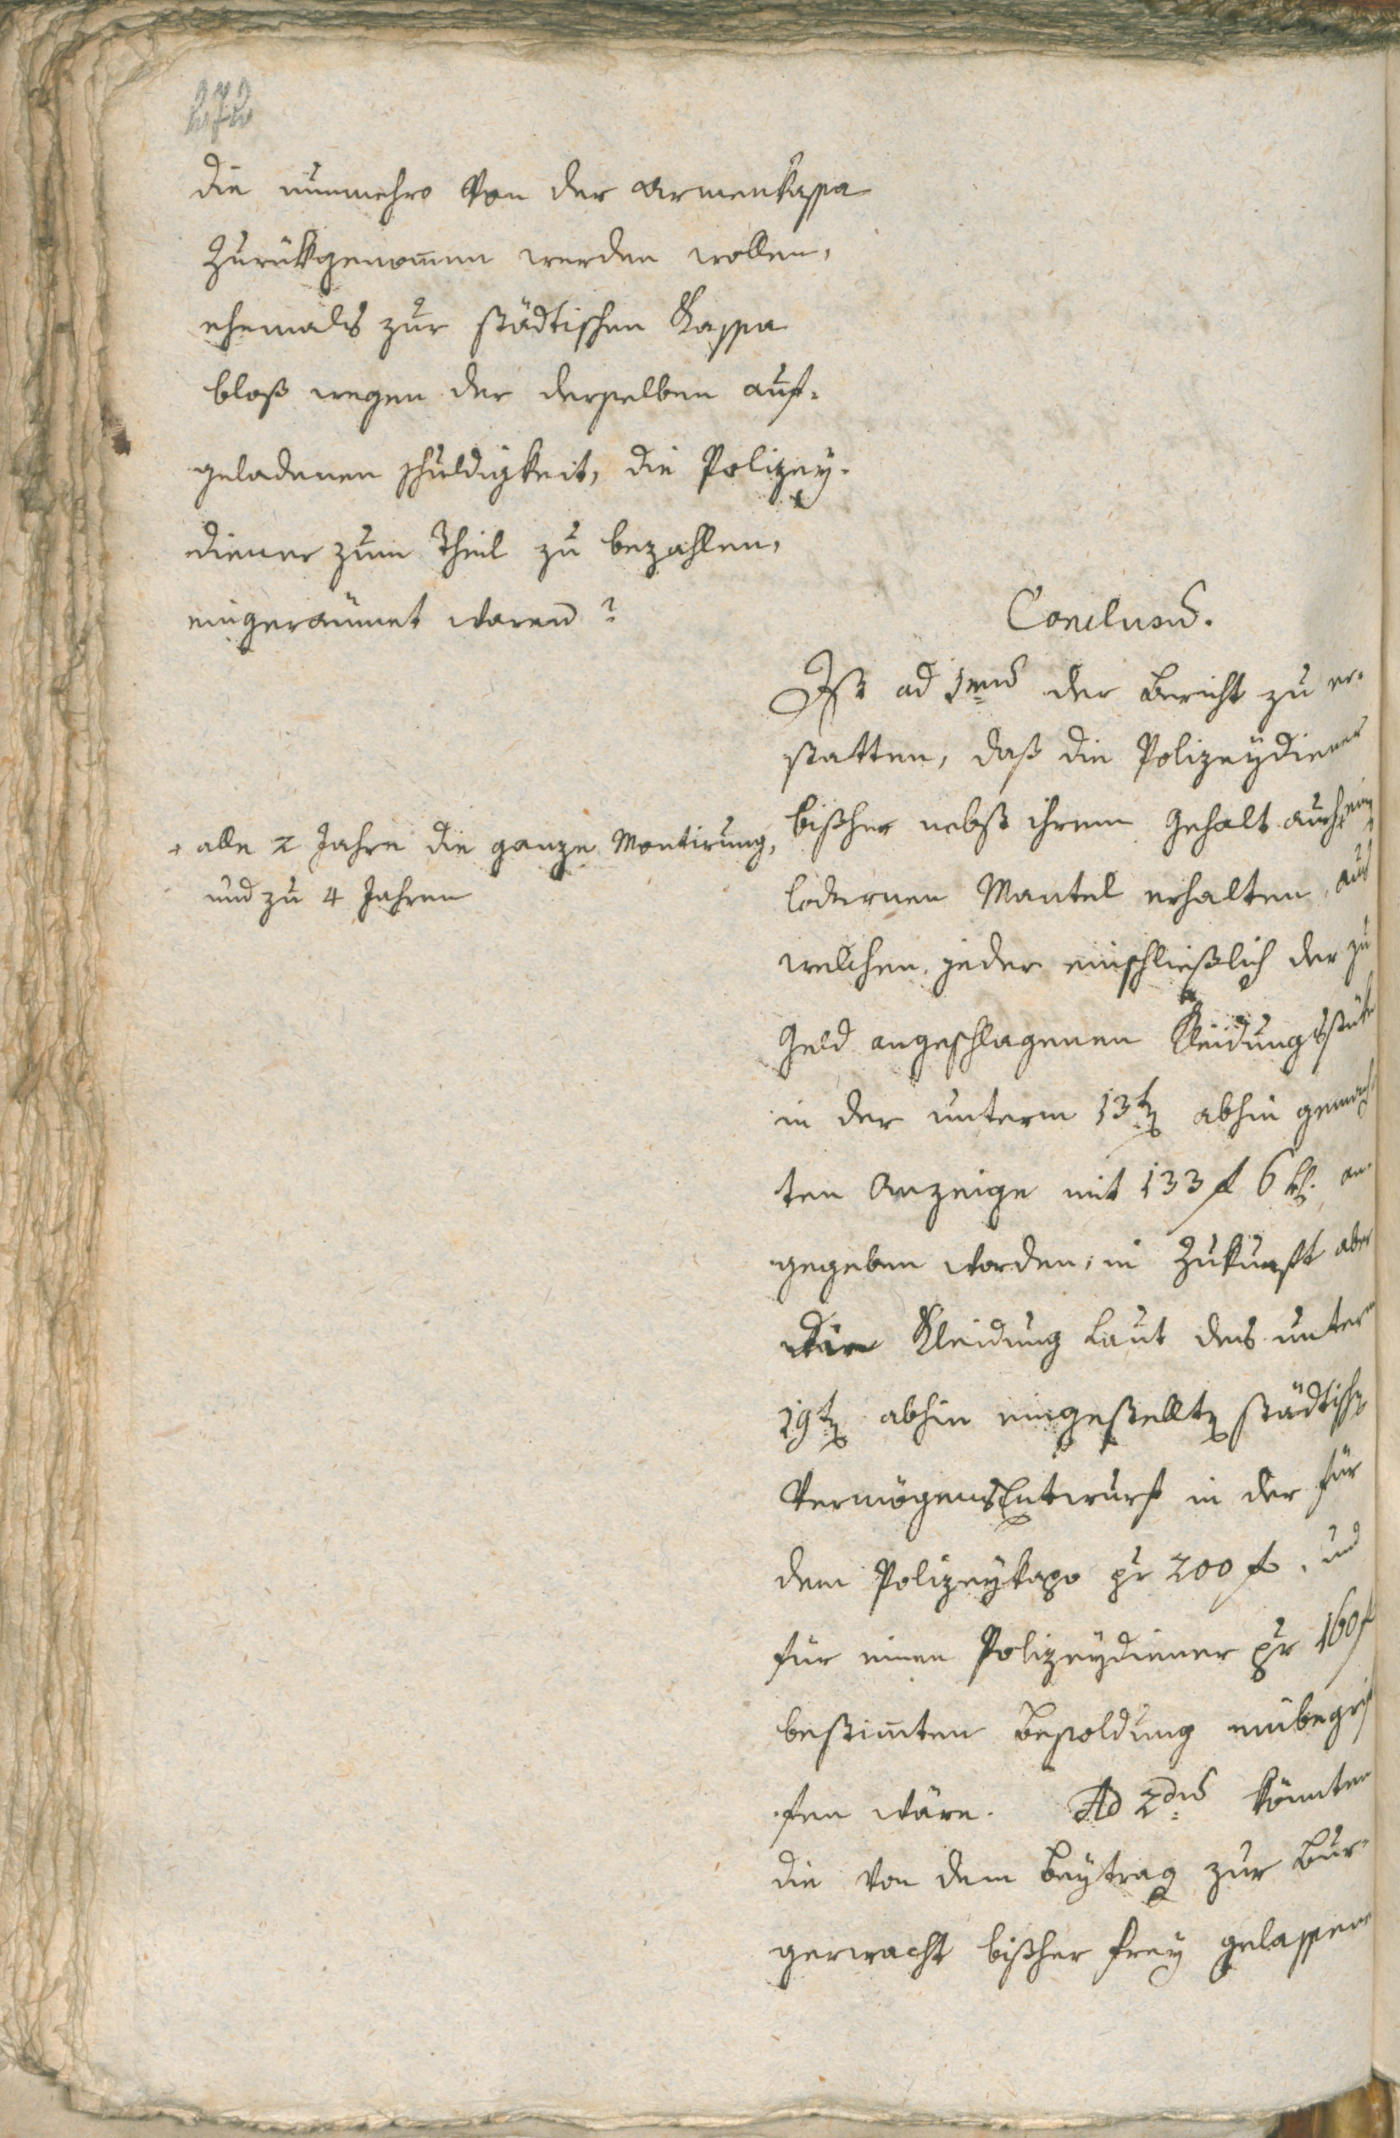 die nunmehro von der Armenkassa
zurükgenom̄en werden wollen,
ehemals zur städtischen Kassa
bloß wegen der derselben auf-
geladenen schuldigkeit, die Polizey-
diener zum Theil zu bezahlen,
eingeraumet waren?
Conclusū.
Ist ad 1mū der Bericht zu er-
statten, daß die Polizeydiener
bißher nebst ihrem Gehalt auch + ein
+ alle 2 Jahre die ganze Montirung,
und zu 4 Jahren
lodernen Mantel erhalten, aus
welchen jeder einschließlich der zu
Geld angeschlagenen Kleidungsstüke
in der unterm 13ten abhin gemach-
ten Anzeige mit 133 f 6 kr. an-
gegeben worden, in Zukunft aber
die Kleidung laut des unterm
19ten abhin eingestellten städtischen
Vermögens Entwurf in der für
dem Polizeykapo pr 200 f, und
für einen Polizeydiener pr 160 f
bestim̄ten Besoldung einbegrif
fen wäre. Ad 2dū könnten
die von dem Beytrag zur Bur-
gerwacht bißher frey gelassene